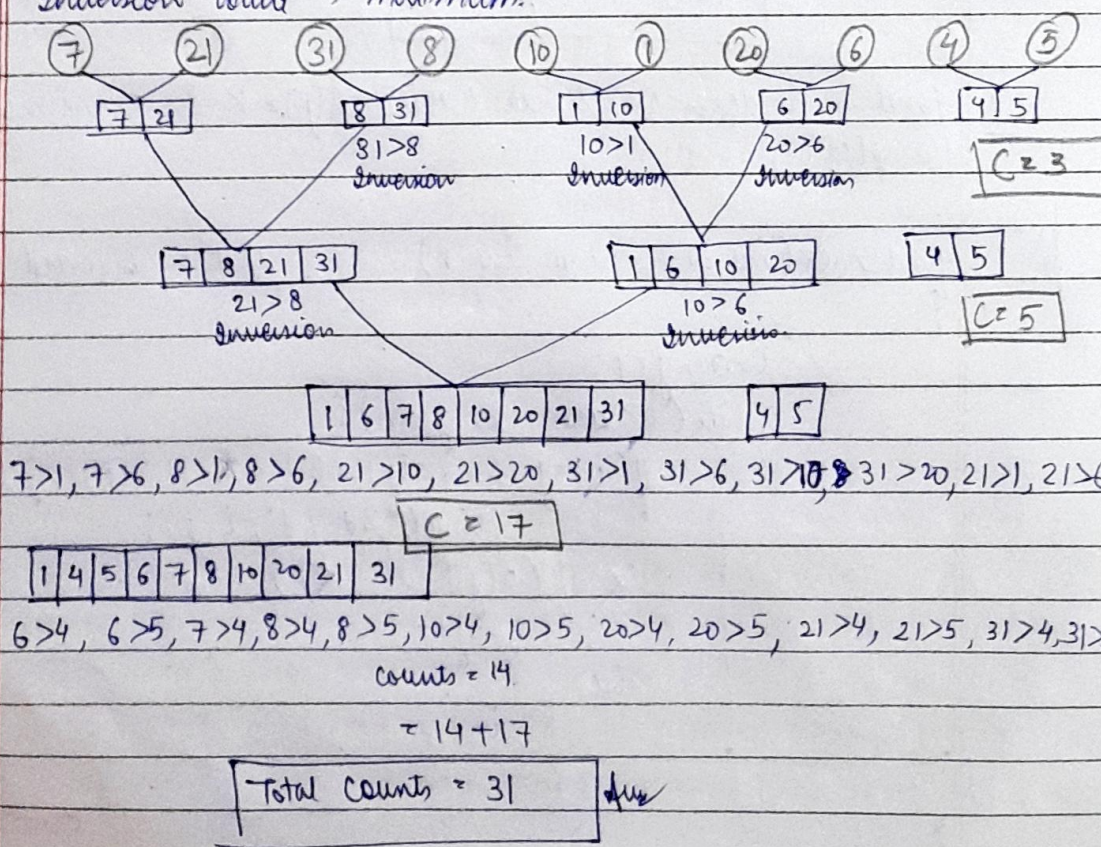 7 21 31 8 10 1 20 6 4 5
7 21 8 31 1 10 6 20 4 5
31>8 10>1 20>6
Inversion Inversion Inversion
C = 3
7 8 21 31 1 6 10 20 4 5
21>8 10>6
Inversion Inversion
C = 5
1 6 7 8 10 20 21 31 4 5
7>1, 7>6, 8>1, 8>6, 21>10, 21>20, 31>1, 31>6, 31>10, 31>20, 21>1, 21>6
C = 17
1 4 5 6 7 8 10 20 21 31
6>4, 6>5, 7>4, 8>4, 8>5, 10>4, 10>5, 20>4, 20>5, 21>4, 21>5, 31>4, 31>
counts = 14
= 14+17
Total Counts = 31 Ans